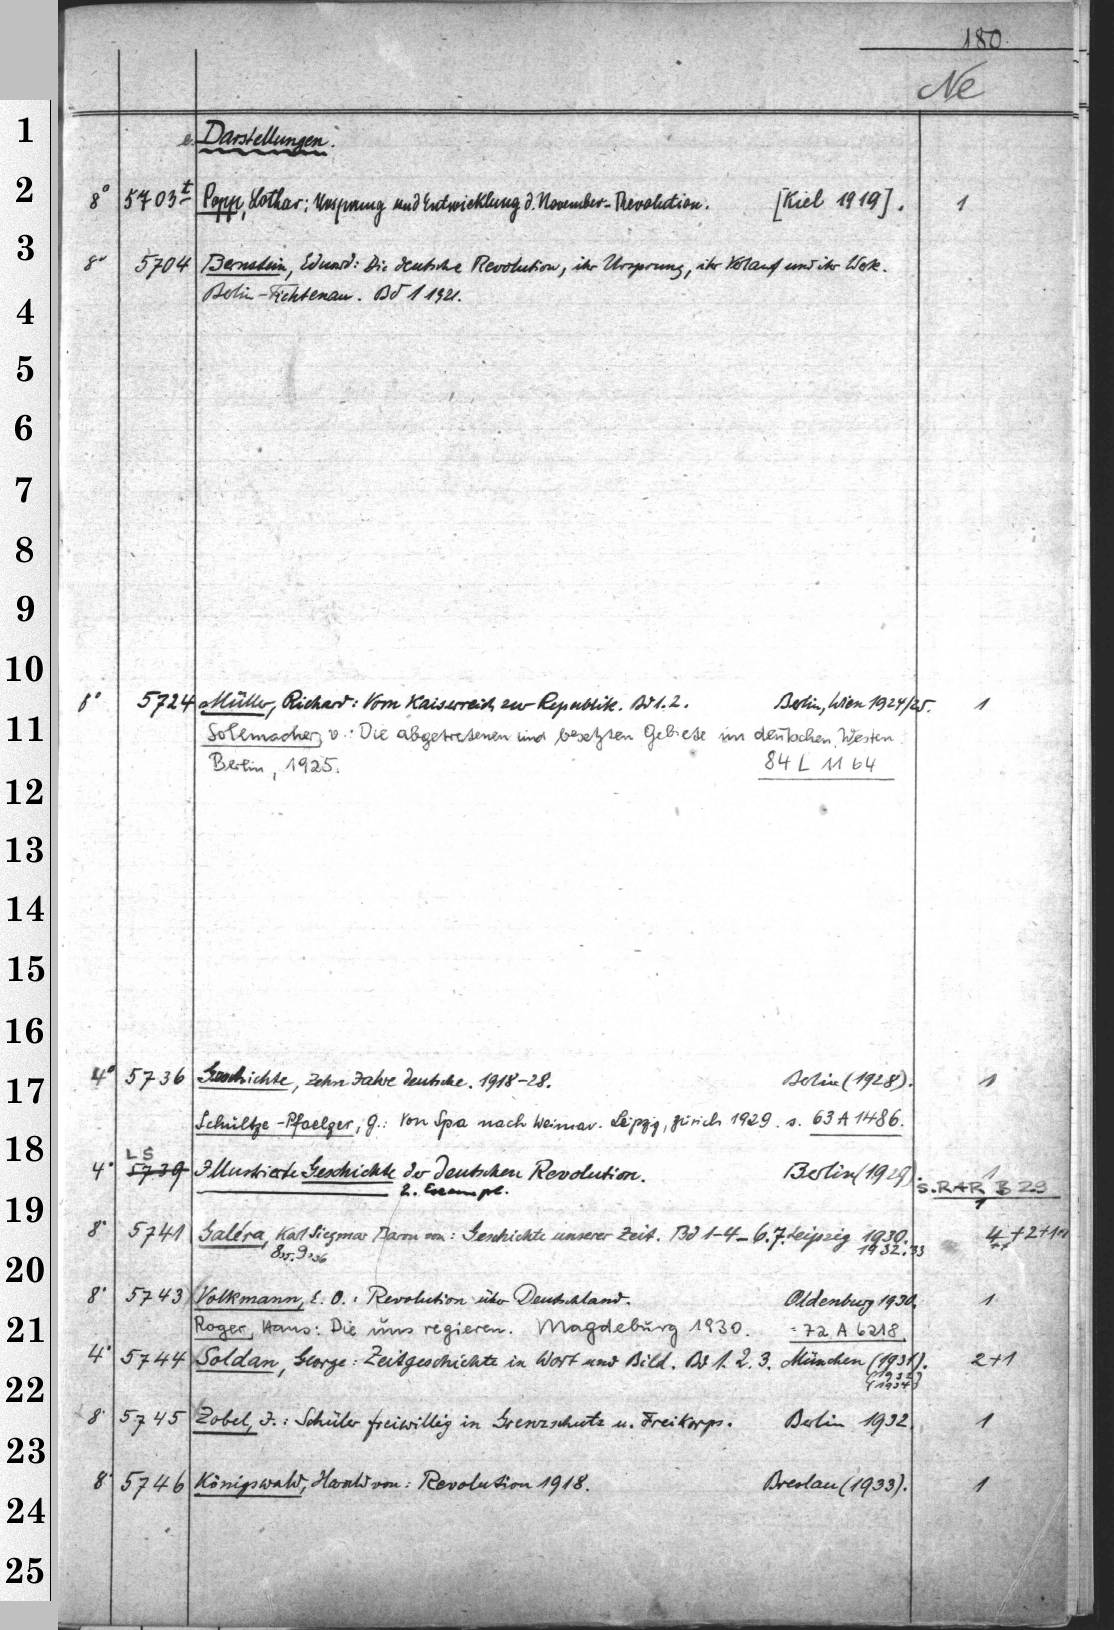 180.
Ne
1
e. Darstellungen.
2
8° 5703t Popp, Lothar: Ursprung und Entwicklung d. November-Revolution. [Kiel 1919]. 1
3
8° 5704 Bernstein, Eduard: Die deutsche Revolution, ihr Ursprung, ihr Verlauf und ihr Werk.
Berlin-Fichtenau. Bd 1 1921.
4
5
6
7
8
9
10
8° 5724 Müller, Richard: Vom Kaiserreich zur Republik. Bd 1.2. Berlin, Wien 1924/25. 1
11
Solemacher, v.: Die abgetretenen und besetzten Gebiete im deutschen Westen.
Berlin, 1925. 84 L 1164
12
13
14
15
16
4° 5736 Geschichte, Zehn Jahre deutsche. 1918-28. Berlin (1928). 1
17
Schultze-Pfaelzer, G.: Von Spa nach Weimar. Leipzig, Zürich 1929. s. 63 A 1486.
18
LS
4° 5739 Illustrierte Geschichte der Deutschen Revolution. Berlin (1929). 1
2. Exempl. s. RAR B 29
1
19
8° 5741 Galéra, Karl Siegmar Baron von: Geschichte unserer Zeit. Bd 1-4-6.7. Leipzig 1930. 4+2+1+1
1932.33
20
8° 5743 Volkmann, E. O.: Revolution über Deutschland. Oldenburg 1930. 1
21
Roger, Hans: Die uns regieren. Magdeburg 1930. = 72 A 6218
4° 5744 Soldan, George: Zeitgeschichte in Wort und Bild. Bd 1. 2. 3. München (1931). 2+1
(1932)
(1934)
22
8° 5745 Zobel, J.: Schüler freiwillig in Grenzschutz u. Freikorps. Berlin 1932. 1
23
8° 5746 Königswald, Harald von: Revolution 1918. Breslau (1933). 1
24
25